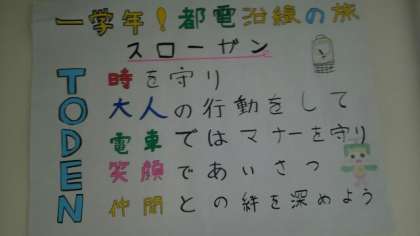 一学年!都電沿線の旅
スローガン
TODEN
時を守り
大人の行動をして
電車ではマナーを守り
笑顔であいさつ
仲間との絆を深めよう